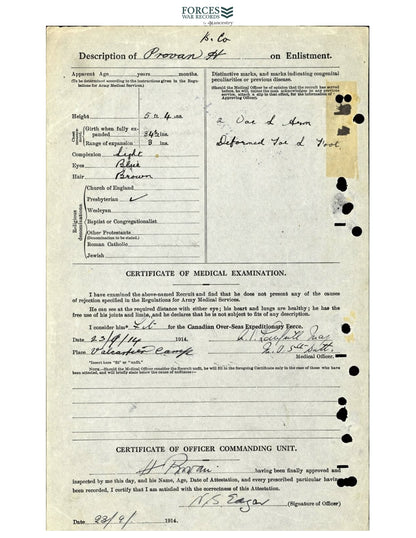 FORCES
WAR RECORDS
by ancestry
B. Co
Description of Provan H on Enlistment.
Apparent Age years months.
(To be determined according to the instructions given in the Regulations for Army Medical Services.)
Height 5 ft 4 ins.
Chest measurement
Girth when fully expanded 34½ ins.
Range of expansion 3 ins.
Complexion Light
Eyes Blue
Hair Brown
Religious denominations
Church of England
Presbyterian ✓
Wesleyan
Baptist or Congregationalist
Other Protestants
(Denomination to be stated.)
Roman Catholic
Jewish
Distinctive marks, and marks indicating congenital peculiarities or previous disease.
(Should the Medical Officer be of opinion that the recruit has served before, he will, unless the man acknowledges to any previous service, attach a slip to that effect, for the information of the Approving Officer).
2 Vac L Arm
Deformed Toe L Foot
CERTIFICATE OF MEDICAL EXAMINATION.
I have examined the above-named Recruit and find that he does not present any of the causes of rejection specified in the Regulations for Army Medical Services.
He can see at the required distance with either eye; his heart and lungs are healthy; he has the free use of his joints and limbs, and he declares that he is not subject to fits of any description.
I consider him* Fit for the Canadian Over-Seas Expeditionary Force.
Date 23/9/14 1914.
Place Valcartier Camp
M.O. 5th Batt.
Medical Officer.
*Insert here "fit" or "unfit."
NOTE.—Should the Medical Officer consider the Recruit unfit, he will fill in the foregoing Certificate only in the case of those who have been attested, and will briefly state below the cause of unfitness:—
CERTIFICATE OF OFFICER COMMANDING UNIT.
H Provan having been finally approved and
inspected by me this day, and his Name, Age, Date of Attestation, and every prescribed particular having been recorded, I certify that I am satisfied with the correctness of this Attestation.
N.S. Edgar (Signature of Officer)
Date 23/9/ 1914.